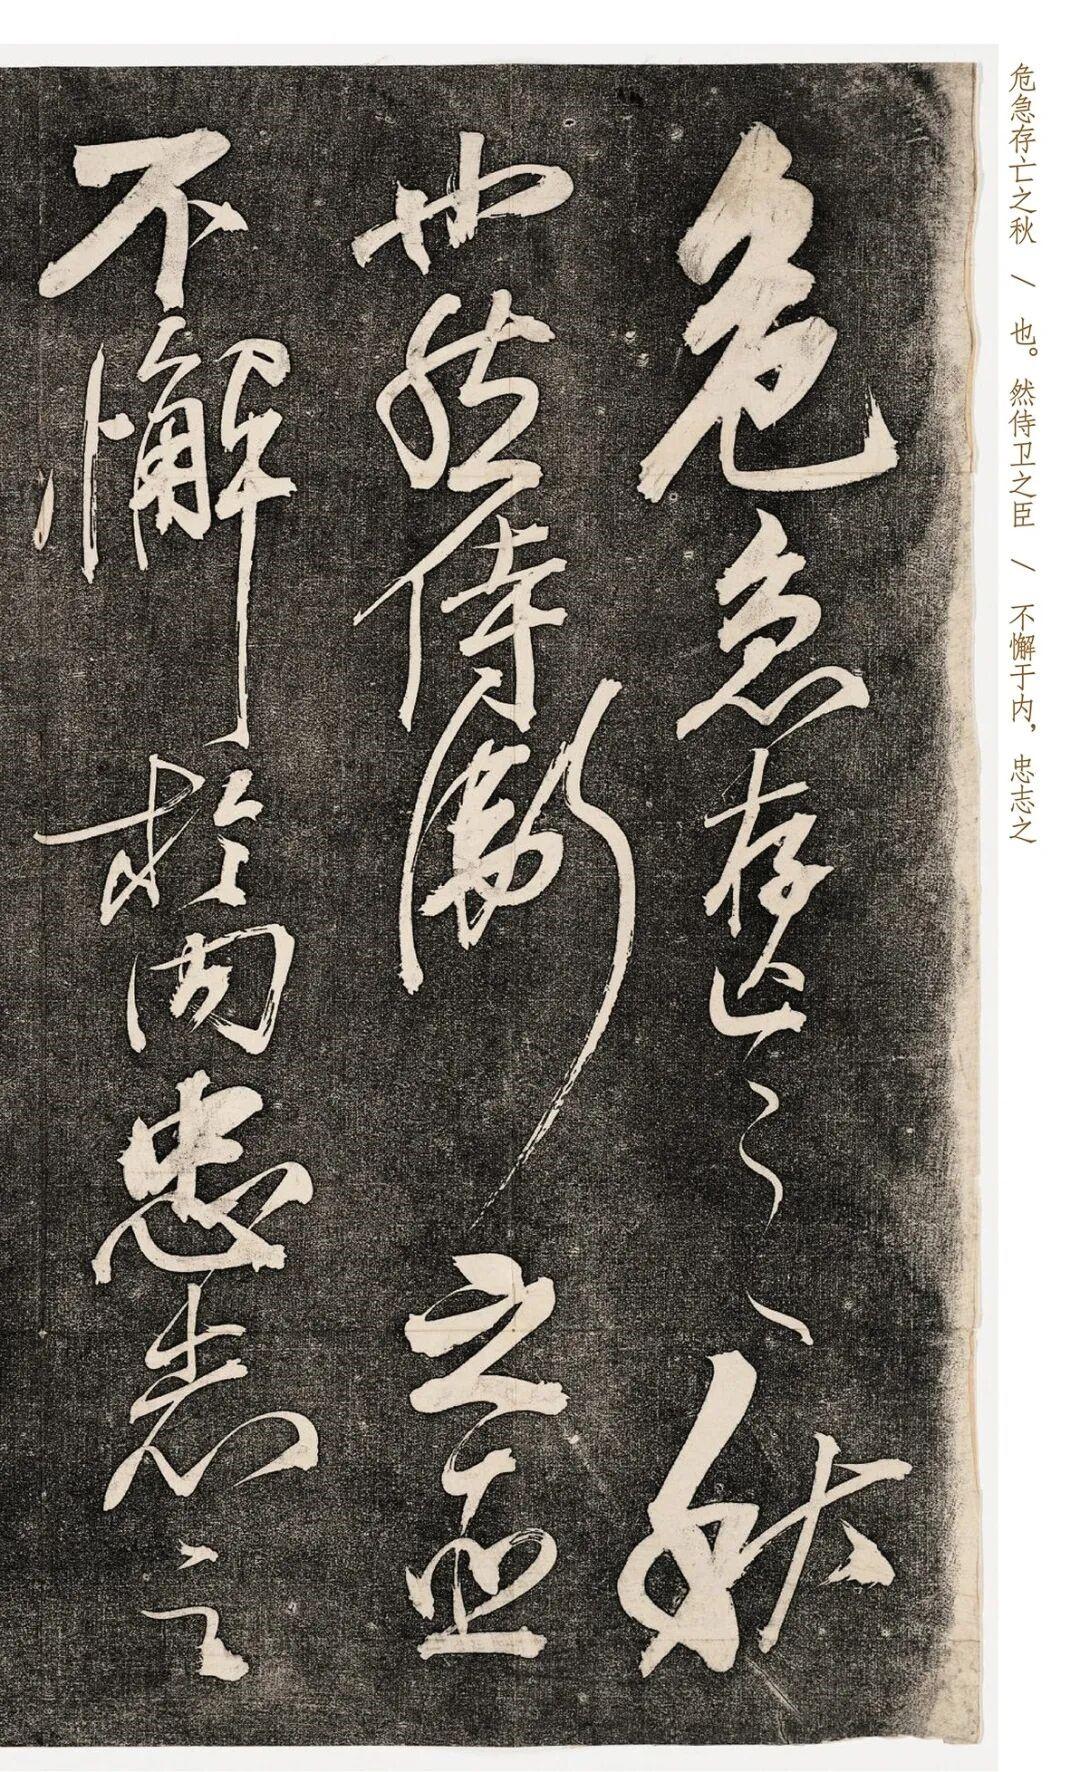 危急存亡之秋 / 也。然侍卫之臣 / 不懈于内，忠志之
危急存亡之秋
也然侍衛之臣
不懈於内忠志之